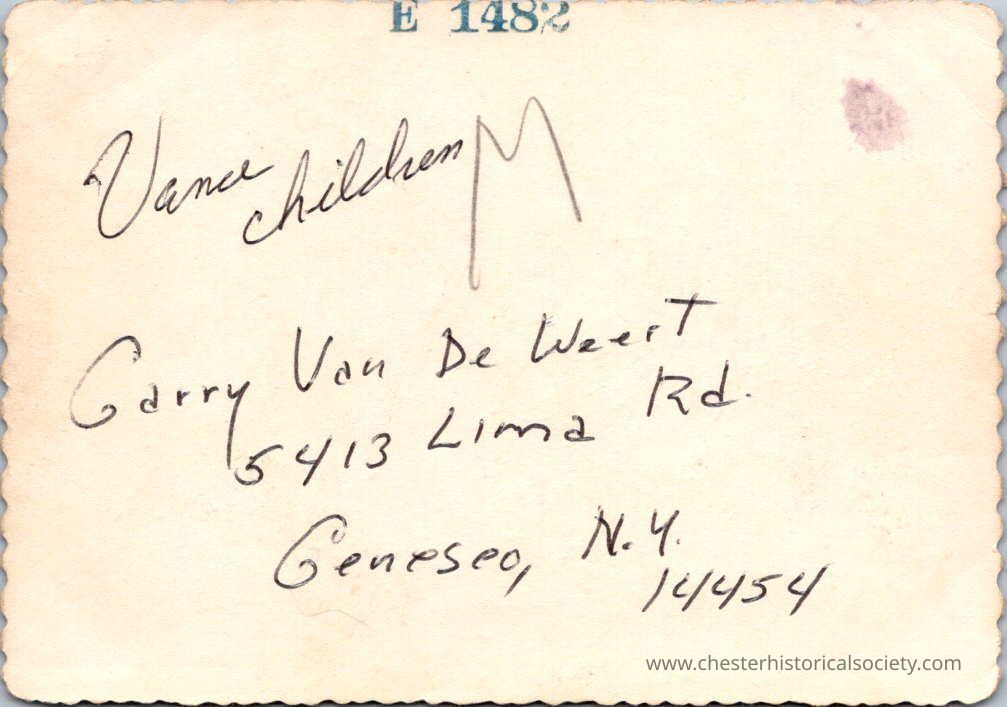 E 1482
Vance
children M
Garry Van De Weert
5413 Lima Rd.
Geneseo, N.Y.
14454
www.chesterhistoricalsociety.com